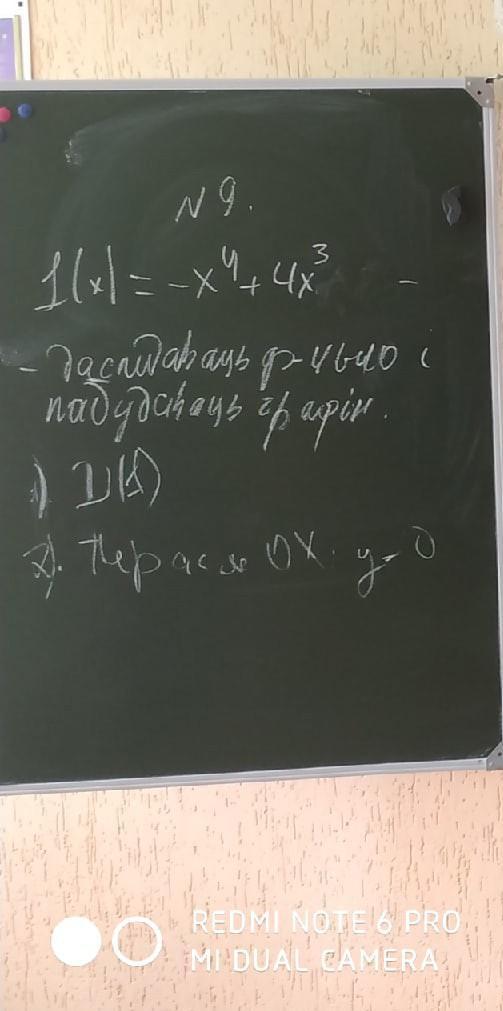 N 9.
f(x) = -x⁴ + 4x³ -
- даследаваць ф-цыю і
пабудаваць графік.
1) D(f)
2). Перас. з OX: y = 0
REDMI NOTE 6 PRO
MI DUAL CAMERA